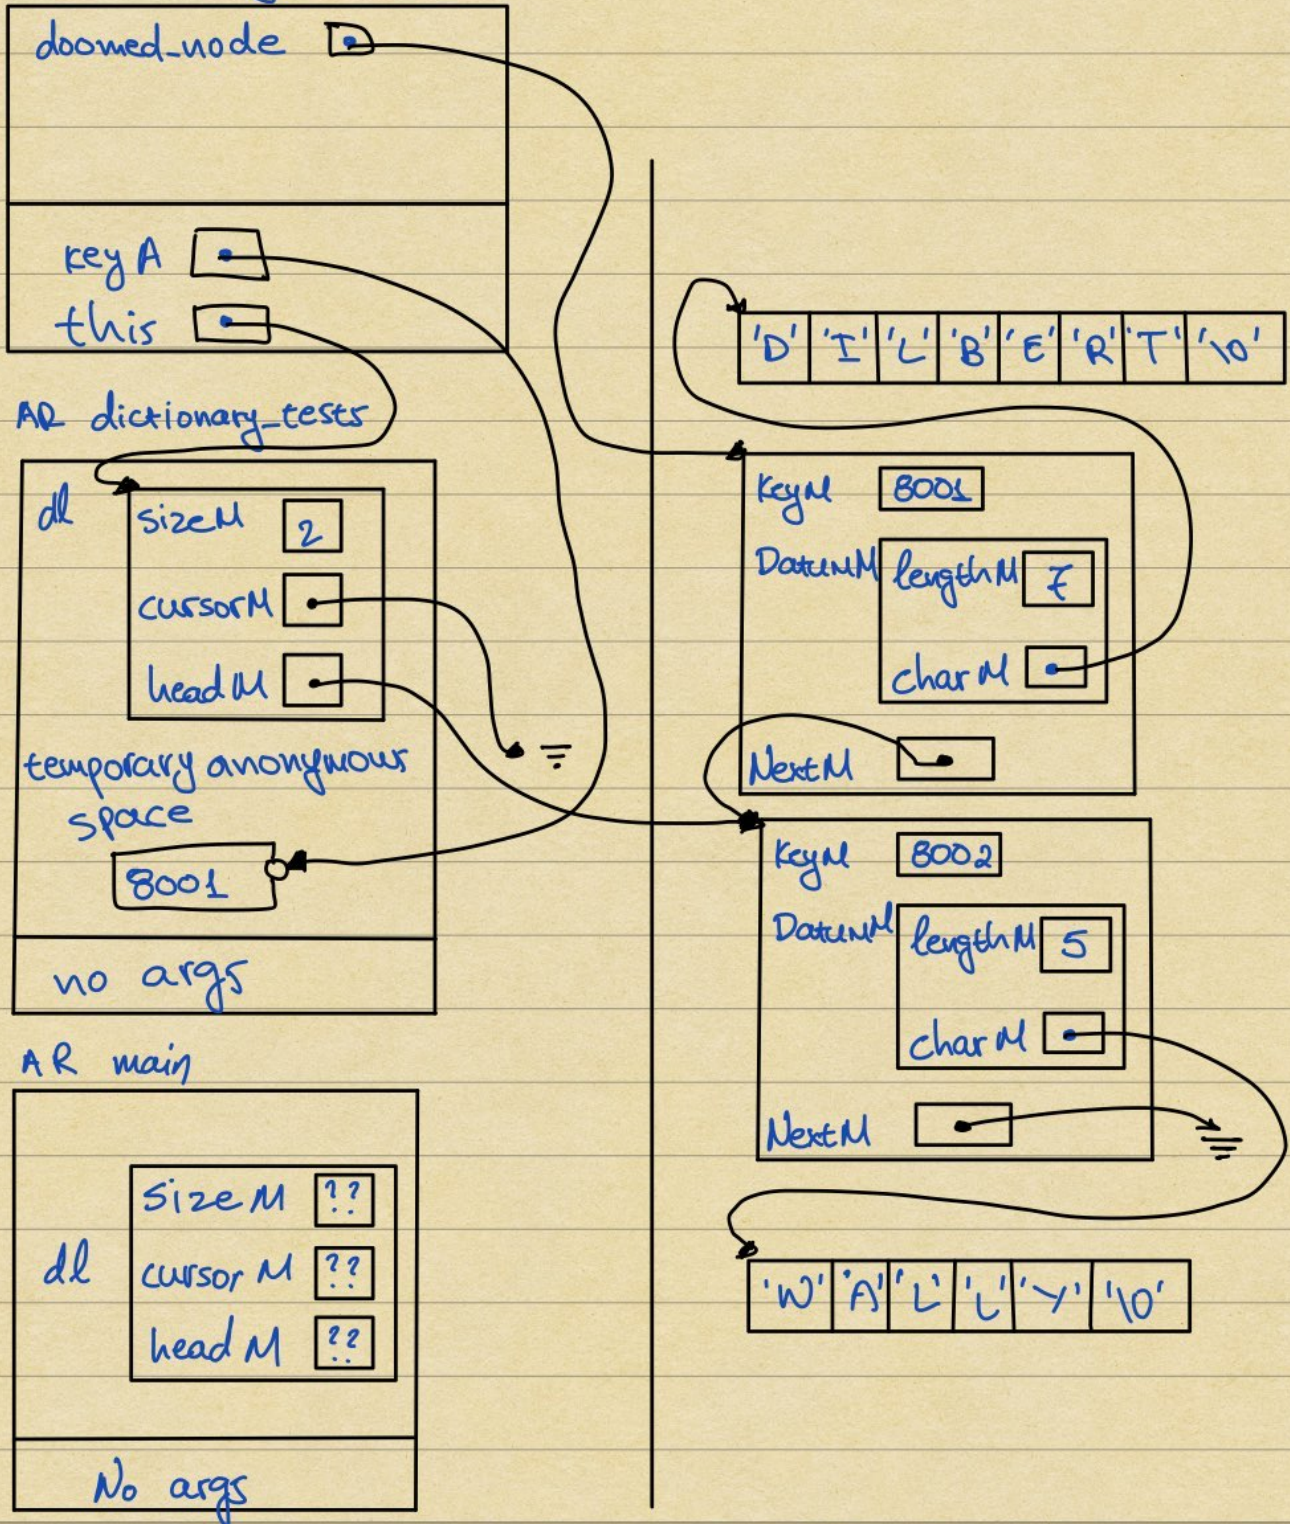 doomed_node
keyA
this
AR dictionary_tests
dl
sizeM 2
cursorM
headM
temporary anonymous
space
8001
no args
AR main
sizeM ??
dl
cursorM ??
headM ??
No args
'D' 'I' 'L' 'B' 'E' 'R' 'T' '\0'
KeyM 8001
DatumM lengthM 7
charM
NextM
KeyM 8002
DatumM lengthM 5
charM
NextM
'W' 'A' 'L' 'L' 'Y' '\0'